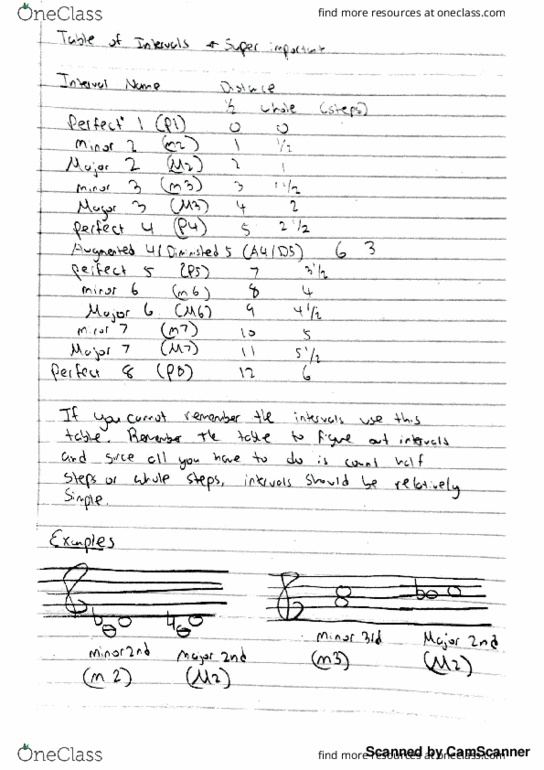 OneClass
find more resources at oneclass.com
Table of Intervals * Super important
Interval Name Distance
1/2 whole (steps)
Perfect 1 (P1) 0 0
minor 2 (m2) 1 1/2
Major 2 (M2) 2 1
minor 3 (m3) 3 1 1/2
Major 3 (M3) 4 2
Perfect 4 (P4) 5 2 1/2
Augmented 4/Diminished 5 (A4/D5) 6 3
Perfect 5 (P5) 7 3 1/2
minor 6 (m6) 8 4
Major 6 (M6) 9 4 1/2
minor 7 (m7) 10 5
Major 7 (M7) 11 5 1/2
Perfect 8 (P8) 12 6
If you cannot remember the intervals use this
table. Remember the table to figure out intervals
and since all you have to do is count half
steps or whole steps, intervals should be relatively
simple.
Examples
minor 2nd Major 2nd minor 3rd Major 2nd
(m2) (M2) (m3) (M2)
OneClass
find more resources at oneclass.com
Scanned by CamScanner